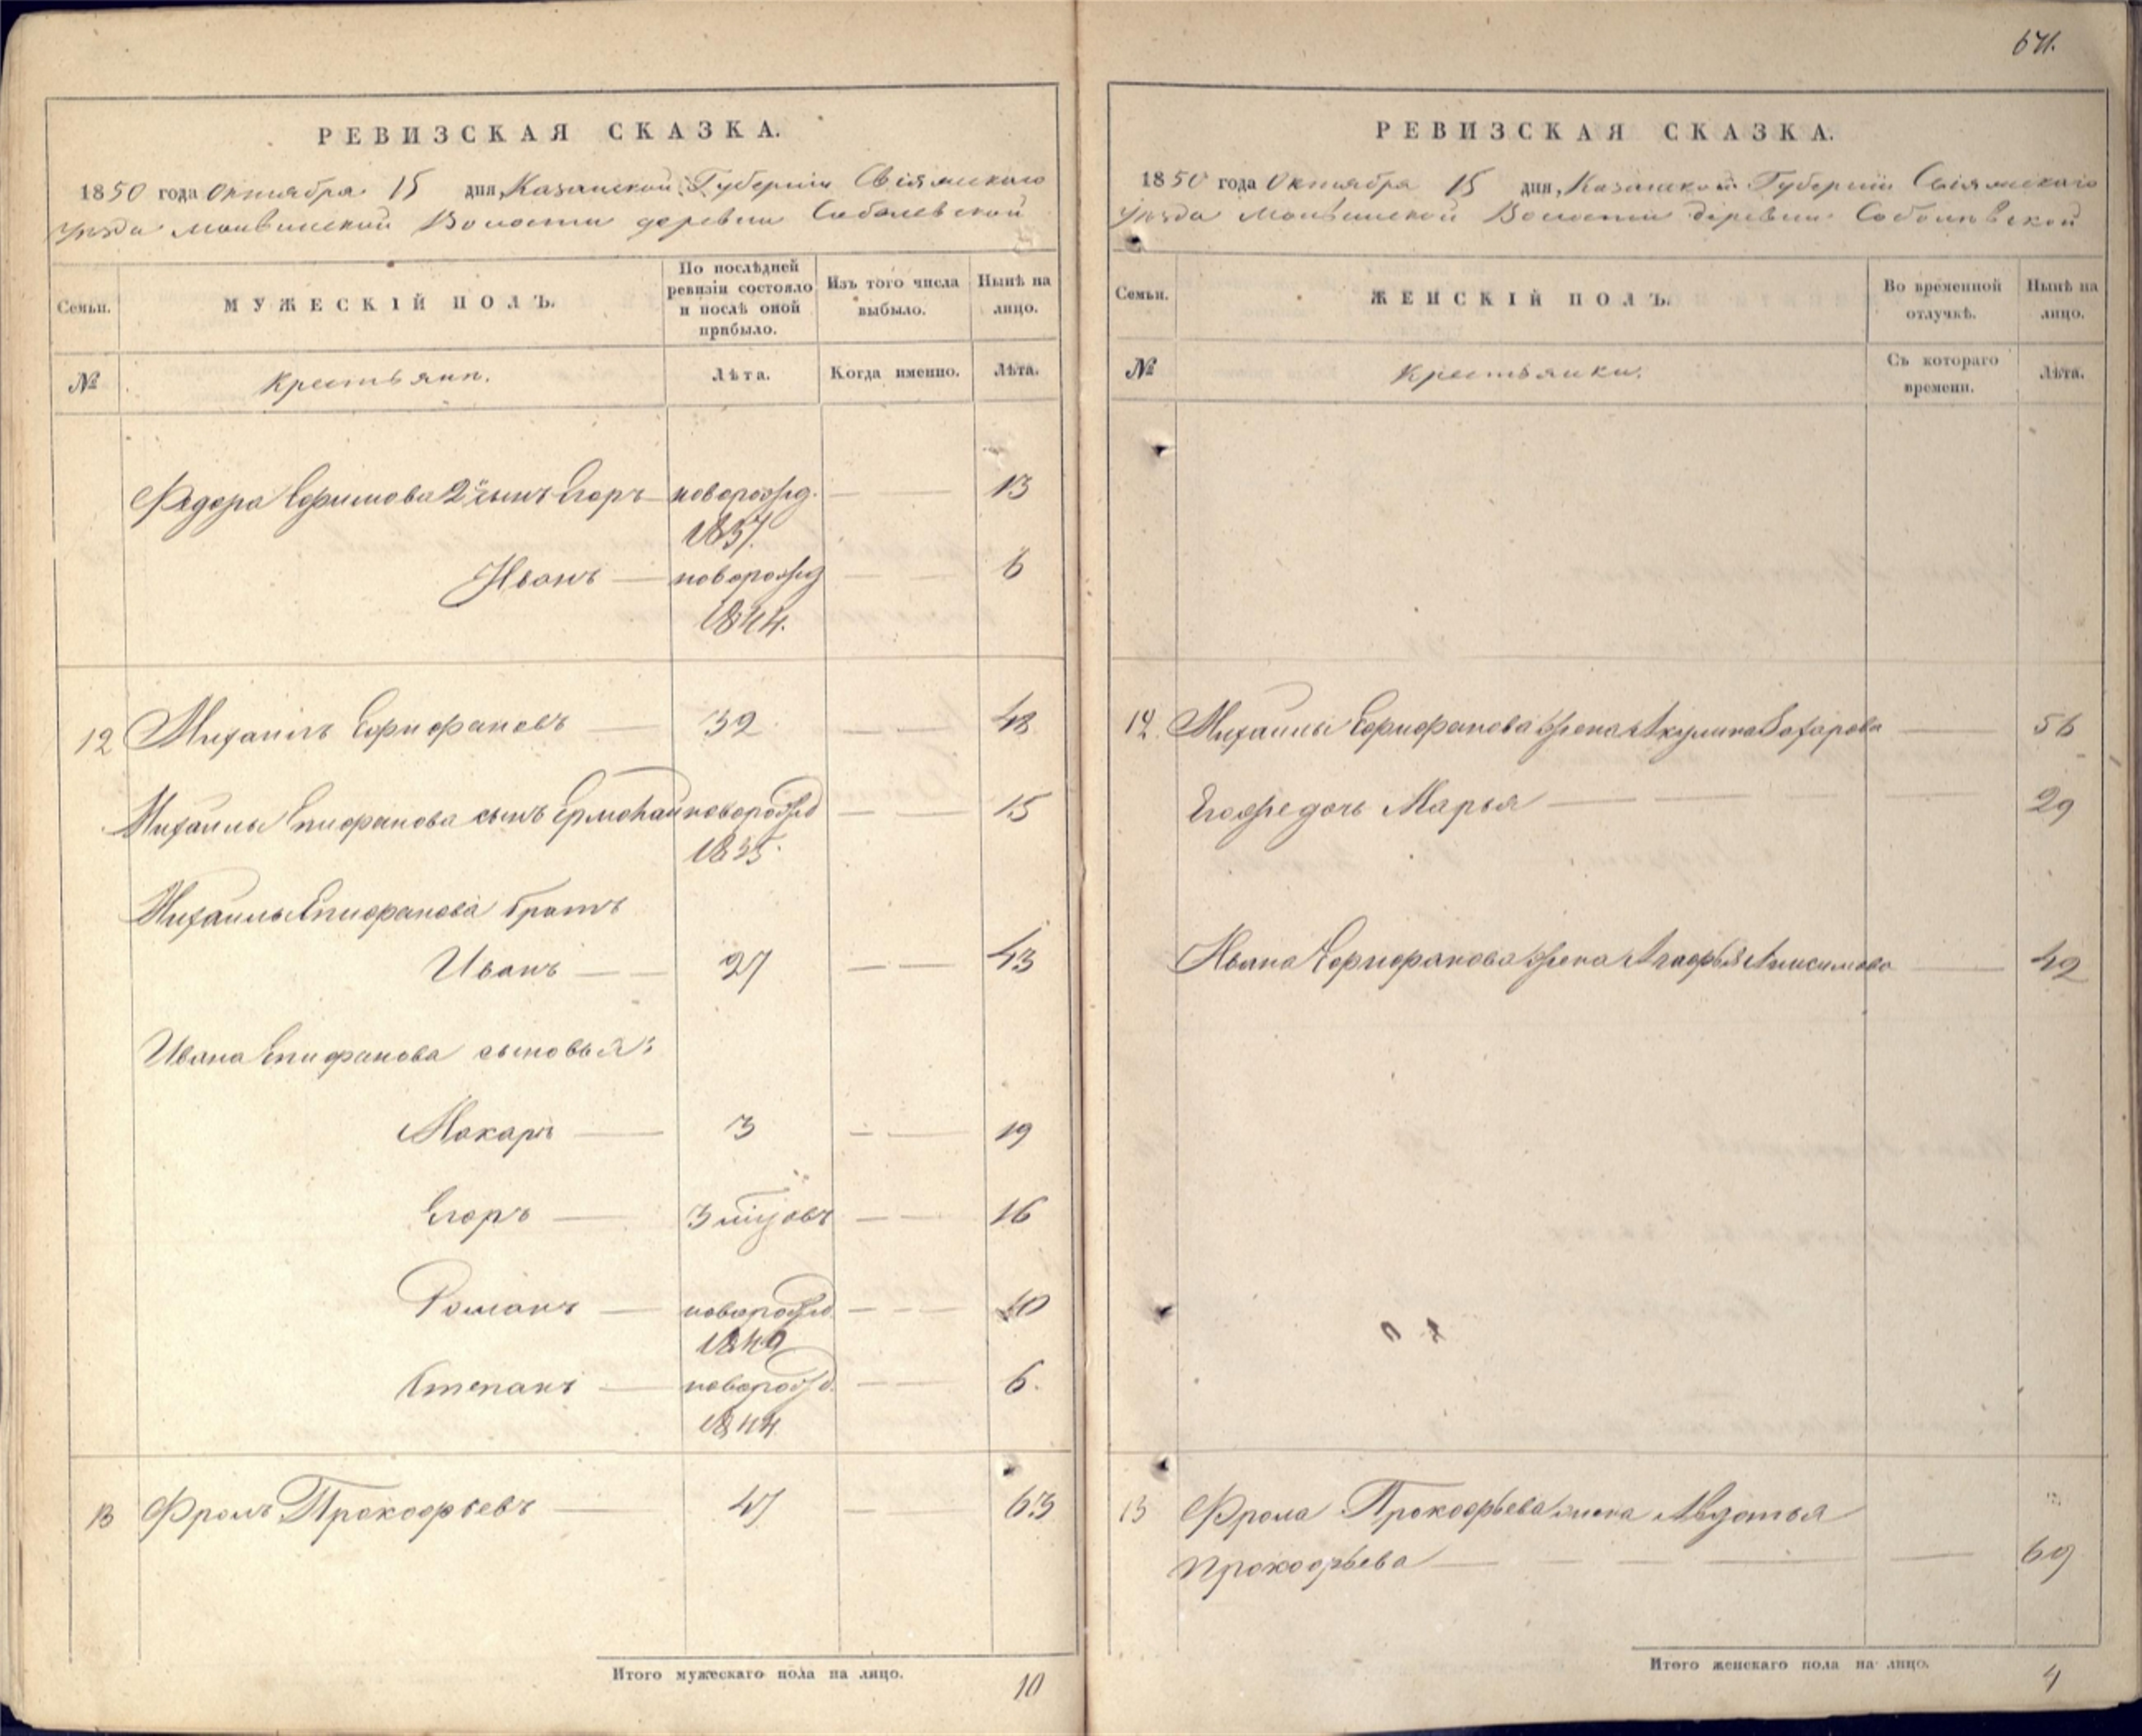 РЕВИЗСКАЯ СКАЗКА.
1850 года Октября 15 дня, Казанской Губерніи Свіяжскаго
Уѣзда Волости деревни Соболевской
Семьи.
МУЖЕСКІЙ ПОЛЪ.
По послѣдней ревизіи состояло и послѣ оной прибыло.
Изъ того числа выбыло.
Нынѣ на лицо.
№
Крестьянъ.
Лѣта.
Когда именно.
Лѣта.
Федора Ефимова 2й сынъ Егоръ — новорожд. — — 13
1837.
Иванъ — новорожд — — 6
1844.
12 Михаилъ Епифановъ — 32 — — 48
Михаилы Епифанова сынъ Ермолай новорожд — — 15
1835.
Михаилы Епифанова братъ
Иванъ — — 27 — — 43
Ивана Епифанова сыновья:
Макаръ — 3 — — 19
Егоръ — 3 мѣсяцовъ — — 16
Романъ — новорожд. — — 10
1840
Степанъ — новорожд. — — 6.
1844
13 Фролъ Прокофьевъ — 47 — 63
Итого мужескаго пола на лицо. 10
671.
РЕВИЗСКАЯ СКАЗКА.
1850 года Октября 15 дня, Казанской Губерніи Свіяжскаго
Уѣзда Волости деревни Соболевской
Семьи.
ЖЕНСКІЙ ПОЛЪ.
Во временной отлучкѣ.
Нынѣ на лицо.
№
Крестьянки.
Съ котораго времени.
Лѣта.
12. Михаилы Епифанова жена Акулина Захарова — 56
Его же дочь Марья — — — — 29
Ивана Епифанова жена Агафья Анисимова — 42
13 Фрола Прокофьева жена Авдотья
Прокофьева — — — — 69
Итого женскаго пола на лицо. 4